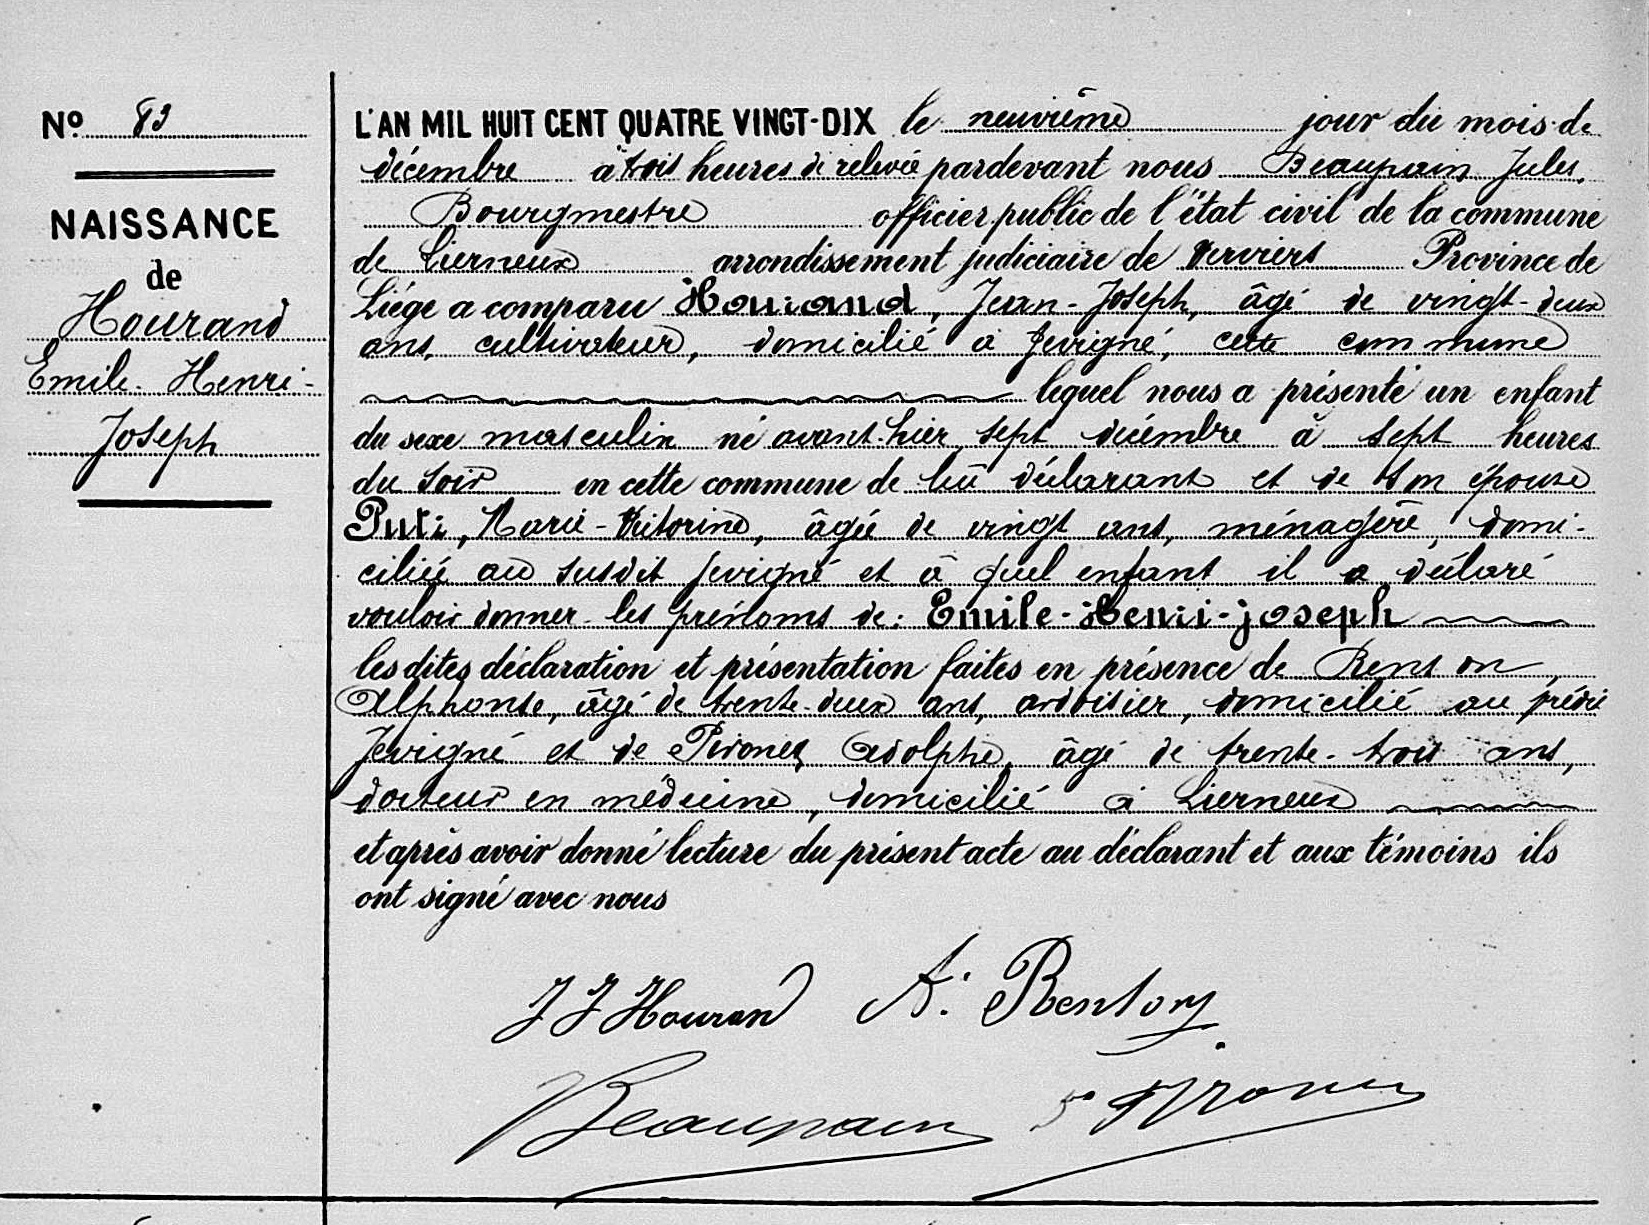 Nº 83
NAISSANCE
de
Hourand
Emile-Henri-
Joseph
L'AN MIL HUIT CENT QUATRE VINGT-DIX le neuvième jour du mois de
décembre à trois heures de relevée pardevant nous Beaupain Jules,
Bourgmestre officier public de l'état civil de la commune
de Lierneux arrondissement judiciaire de Verviers Province de
Liége a comparu Hourand, Jean-Joseph, âgé de vingt-deux
ans, cultivateur, domicilié à Jevigné, cette commune
lequel nous a présenté un enfant
du sexe masculin né avant-hier, sept décembre à sept heures
du soir en cette commune de lui déclarant et de son épouse
Marie-Victorine, âgée de vingt ans, ménagère, domi-
ciliée au susdit Jevigné et à quel enfant il a déclaré
vouloir donner les prénoms de: Emile-Henri-Joseph
les dites déclaration et présentation faites en présence de Renson
Alphonse, âgé de trente-deux ans, ardoisier, domicilié au prédit
Jevigné et de Adolphe, âgé de trente-trois ans,
docteur en médecine, domicilié à Lierneux
et après avoir donné lecture du présent acte au déclarant et aux témoins ils
ont signé avec nous
J J Hourand A. Renson
Beaupain